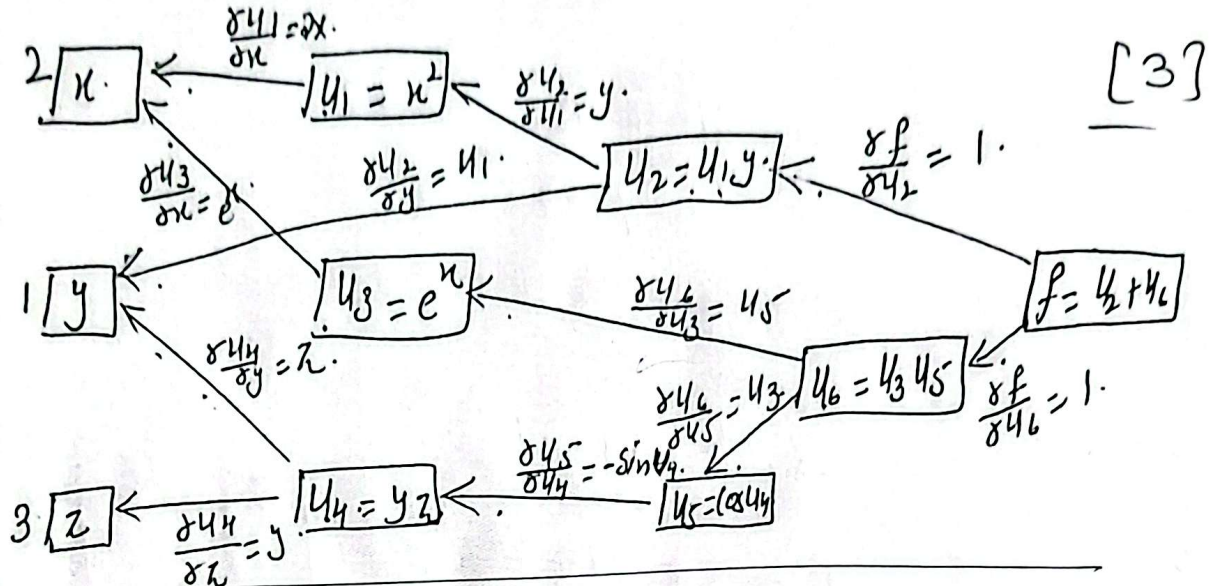 ∂u1/∂x = 2x.
[3]
2 x.
u1 = x²
∂u2/∂u1 = y.
∂f/∂u2 = 1.
∂u3/∂x = eˣ
∂u2/∂y = u1.
u2 = u1y.
1 y
u3 = eˣ
∂u6/∂u3 = u5
f = u2 + u6
∂u4/∂y = z.
∂u6/∂u5 = u3.
u6 = u3 u5
∂f/∂u6 = 1.
∂u5/∂u4 = -sin u4.
3 z
∂u4/∂z = y
u4 = yz
u5 = cos u4